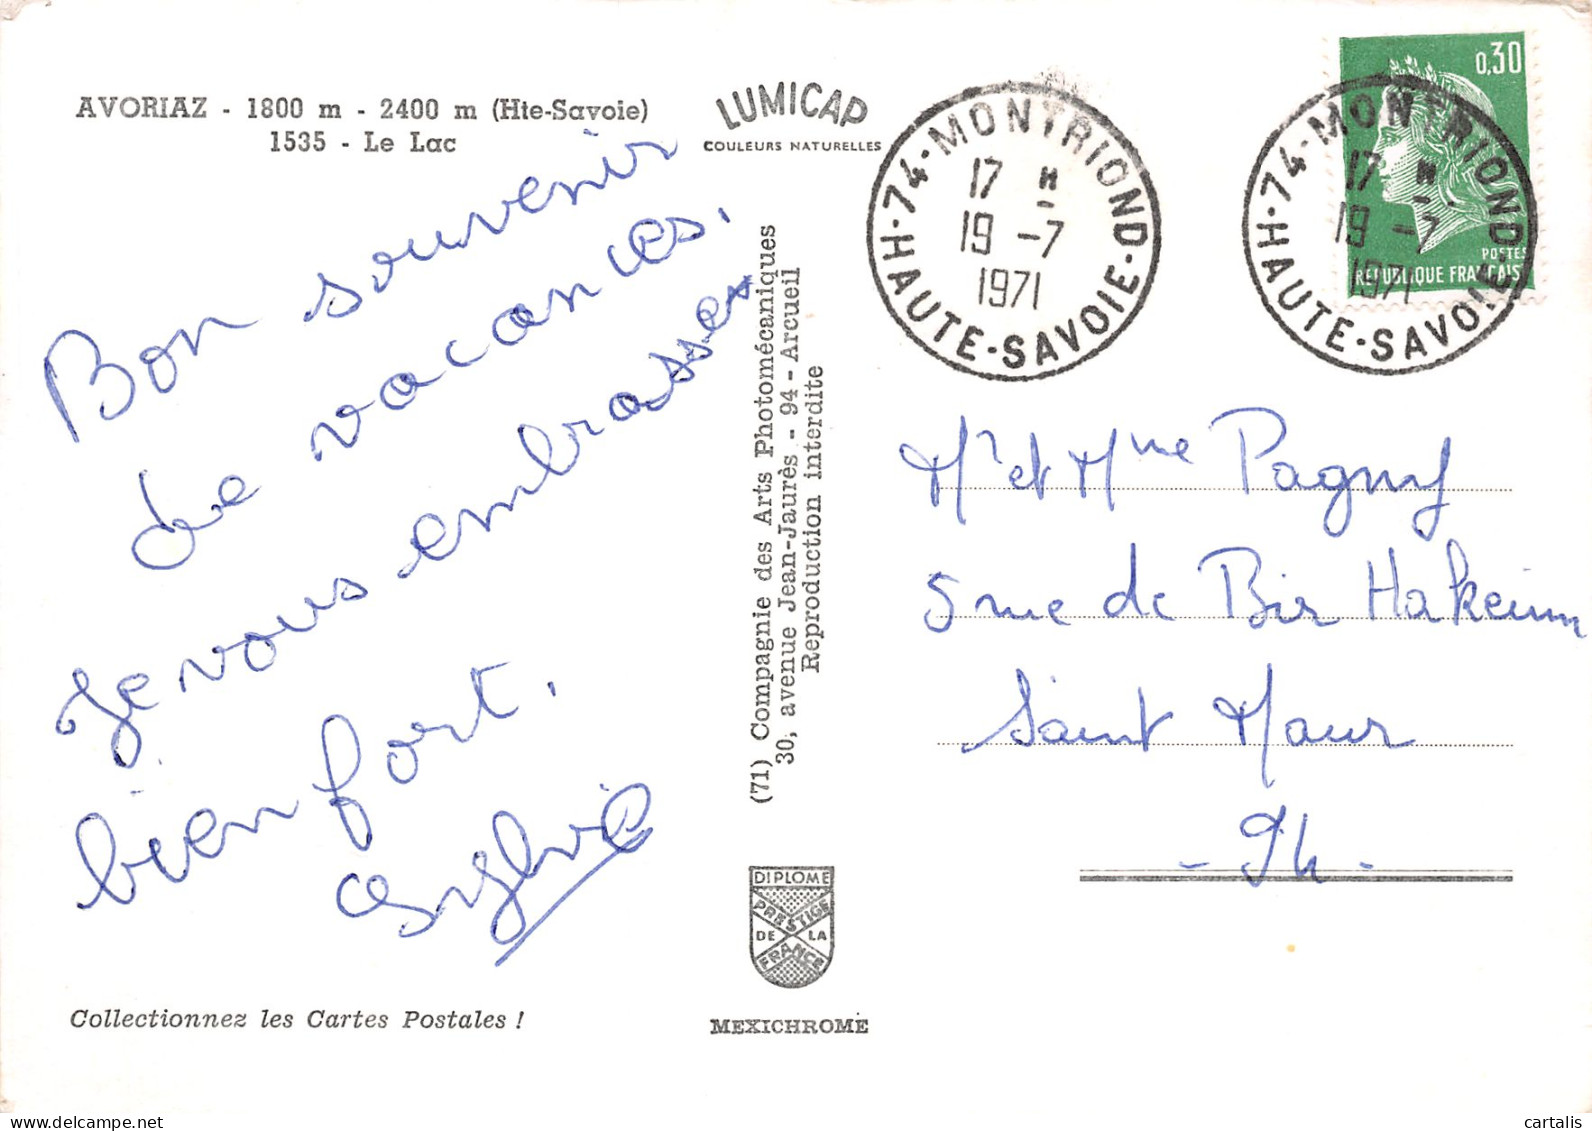 AVORIAZ - 1800 m - 2400 m (Hte-Savoie)
1535 - Le Lac
LUMICAP
COULEURS NATURELLES
Bon souvenir
de vacances.
Je vous embrasses
bien fort.
Sylvie
Collectionnez les Cartes Postales !
(71) Compagnie des Arts Photomécaniques
30, avenue Jean-Jaurès - 94 - Arcueil
Reproduction interdite
DIPLOME
PRESTIGE
DE LA
FRANCE
MEXICHROME
74 - MONTRIOND
17 H
19 -7
1971
HAUTE-SAVOIE
74 - MONTRIOND
17 H
19 -7
1971
HAUTE-SAVOIE
0,30
POSTES
REPUBLIQUE FRANÇAISE
Mr et Mme Pagny
5 rue de Bir Hakeim
Saint Maur
- 94 -
cartalis
delcampe.net